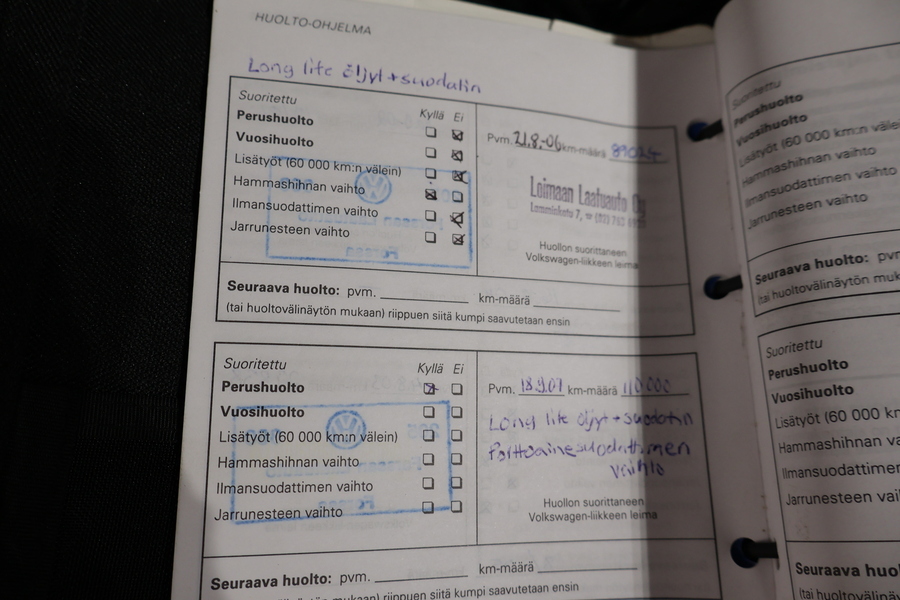 HUOLTO-OHJELMA
Long life öljyt + suodatin
Suoritettu Kyllä Ei
Perushuolto
Vuosihuolto
Lisätyöt (60 000 km:n välein)
Hammashihnan vaihto
Ilmansuodattimen vaihto
Jarrunesteen vaihto
Pvm. 21.8.-06 km-määrä 89024
Loimaan Laatuauto Oy
Lamminkatu 7,
Huollon suorittaneen
Volkswagen-liikkeen leima
Seuraava huolto: pvm. km-määrä
(tai huoltovälinäytön mukaan) riippuen siitä kumpi saavutetaan ensin
Suoritettu Kyllä Ei
Perushuolto
Vuosihuolto
Lisätyöt (60 000 km:n välein)
Hammashihnan vaihto
Ilmansuodattimen vaihto
Jarrunesteen vaihto
Pvm. 18.9.07 km-määrä 110 000
Long life öljyt + suodatin
Polttoainesuodattimen
vaihto
Huollon suorittaneen
Volkswagen-liikkeen leima
Seuraava huolto: pvm. km-määrä
(tai huoltovälinäytön mukaan) riippuen siitä kumpi saavutetaan ensin
Suoritettu
Perushuolto
Vuosihuolto
Lisätyöt (60 000 km:n
Hammashihnan vaihto
Ilmansuodattimen vaihto
Jarrunesteen vaihto
Seuraava huolto:
(tai huoltovälinäytön
Suoritettu
Perushuolto
Vuosihuolto
Lisätyöt (60 000
Hammashihnan
Jarrunesteen